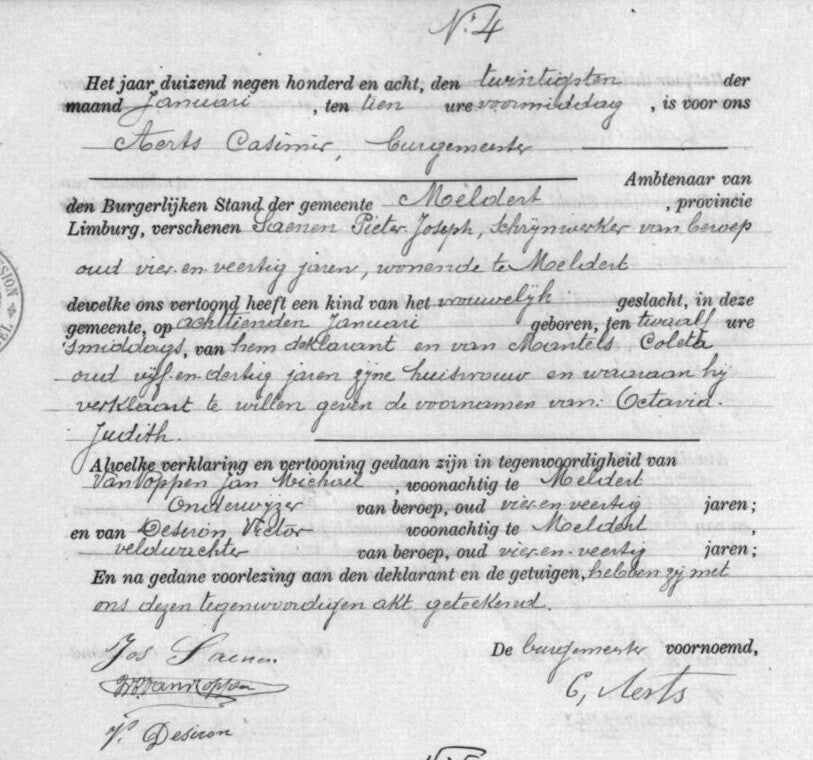 N.º 4
Het jaar duizend negen honderd en acht, den twintigsten der
maand Januari, ten tien ure voormiddag, is voor ons
Aerts Casimir, burgemeester
Ambtenaar van
den Burgerlijken Stand der gemeente Meldert, provincie
Limburg, verschenen Saenen Pieter Joseph, schrijnwerker van beroep
oud vier en veertig jaren, wonende te Meldert
dewelke ons vertoond heeft een kind van het vrouwelijk geslacht, in deze
gemeente, op achttienden Januari geboren, ten twaalf ure
'smiddags, van hem deklarant en van Mantels Coleta
oud vijf en dertig jaren zijne huisvrouw en waaraan hij
verklaart te willen geven de voornamen van: Octavia
Judith.
Alwelke verklaring en vertooning gedaan zijn in tegenwoordigheid van
Van Poppen Jan Michael, woonachtig te Meldert
Onderwijzer van beroep, oud vier en veertig jaren;
en van Deseron Victor woonachtig te Meldert,
veldwachter van beroep, oud vier en veertig jaren;
En na gedane voorlezing aan den deklarant en de getuigen, hebben zij met
ons dezen tegenwoordigen akt geteekend.
De burgemeester voornoemd,
Jos Saenen
C, Aerts
VanPoppen
V. Deseron